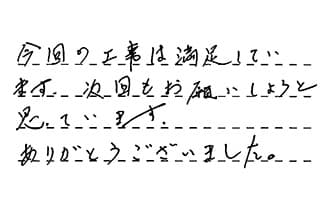 今回の工事は満足してい
ます。次回もお願いしようと
思っています。
ありがとうございました。